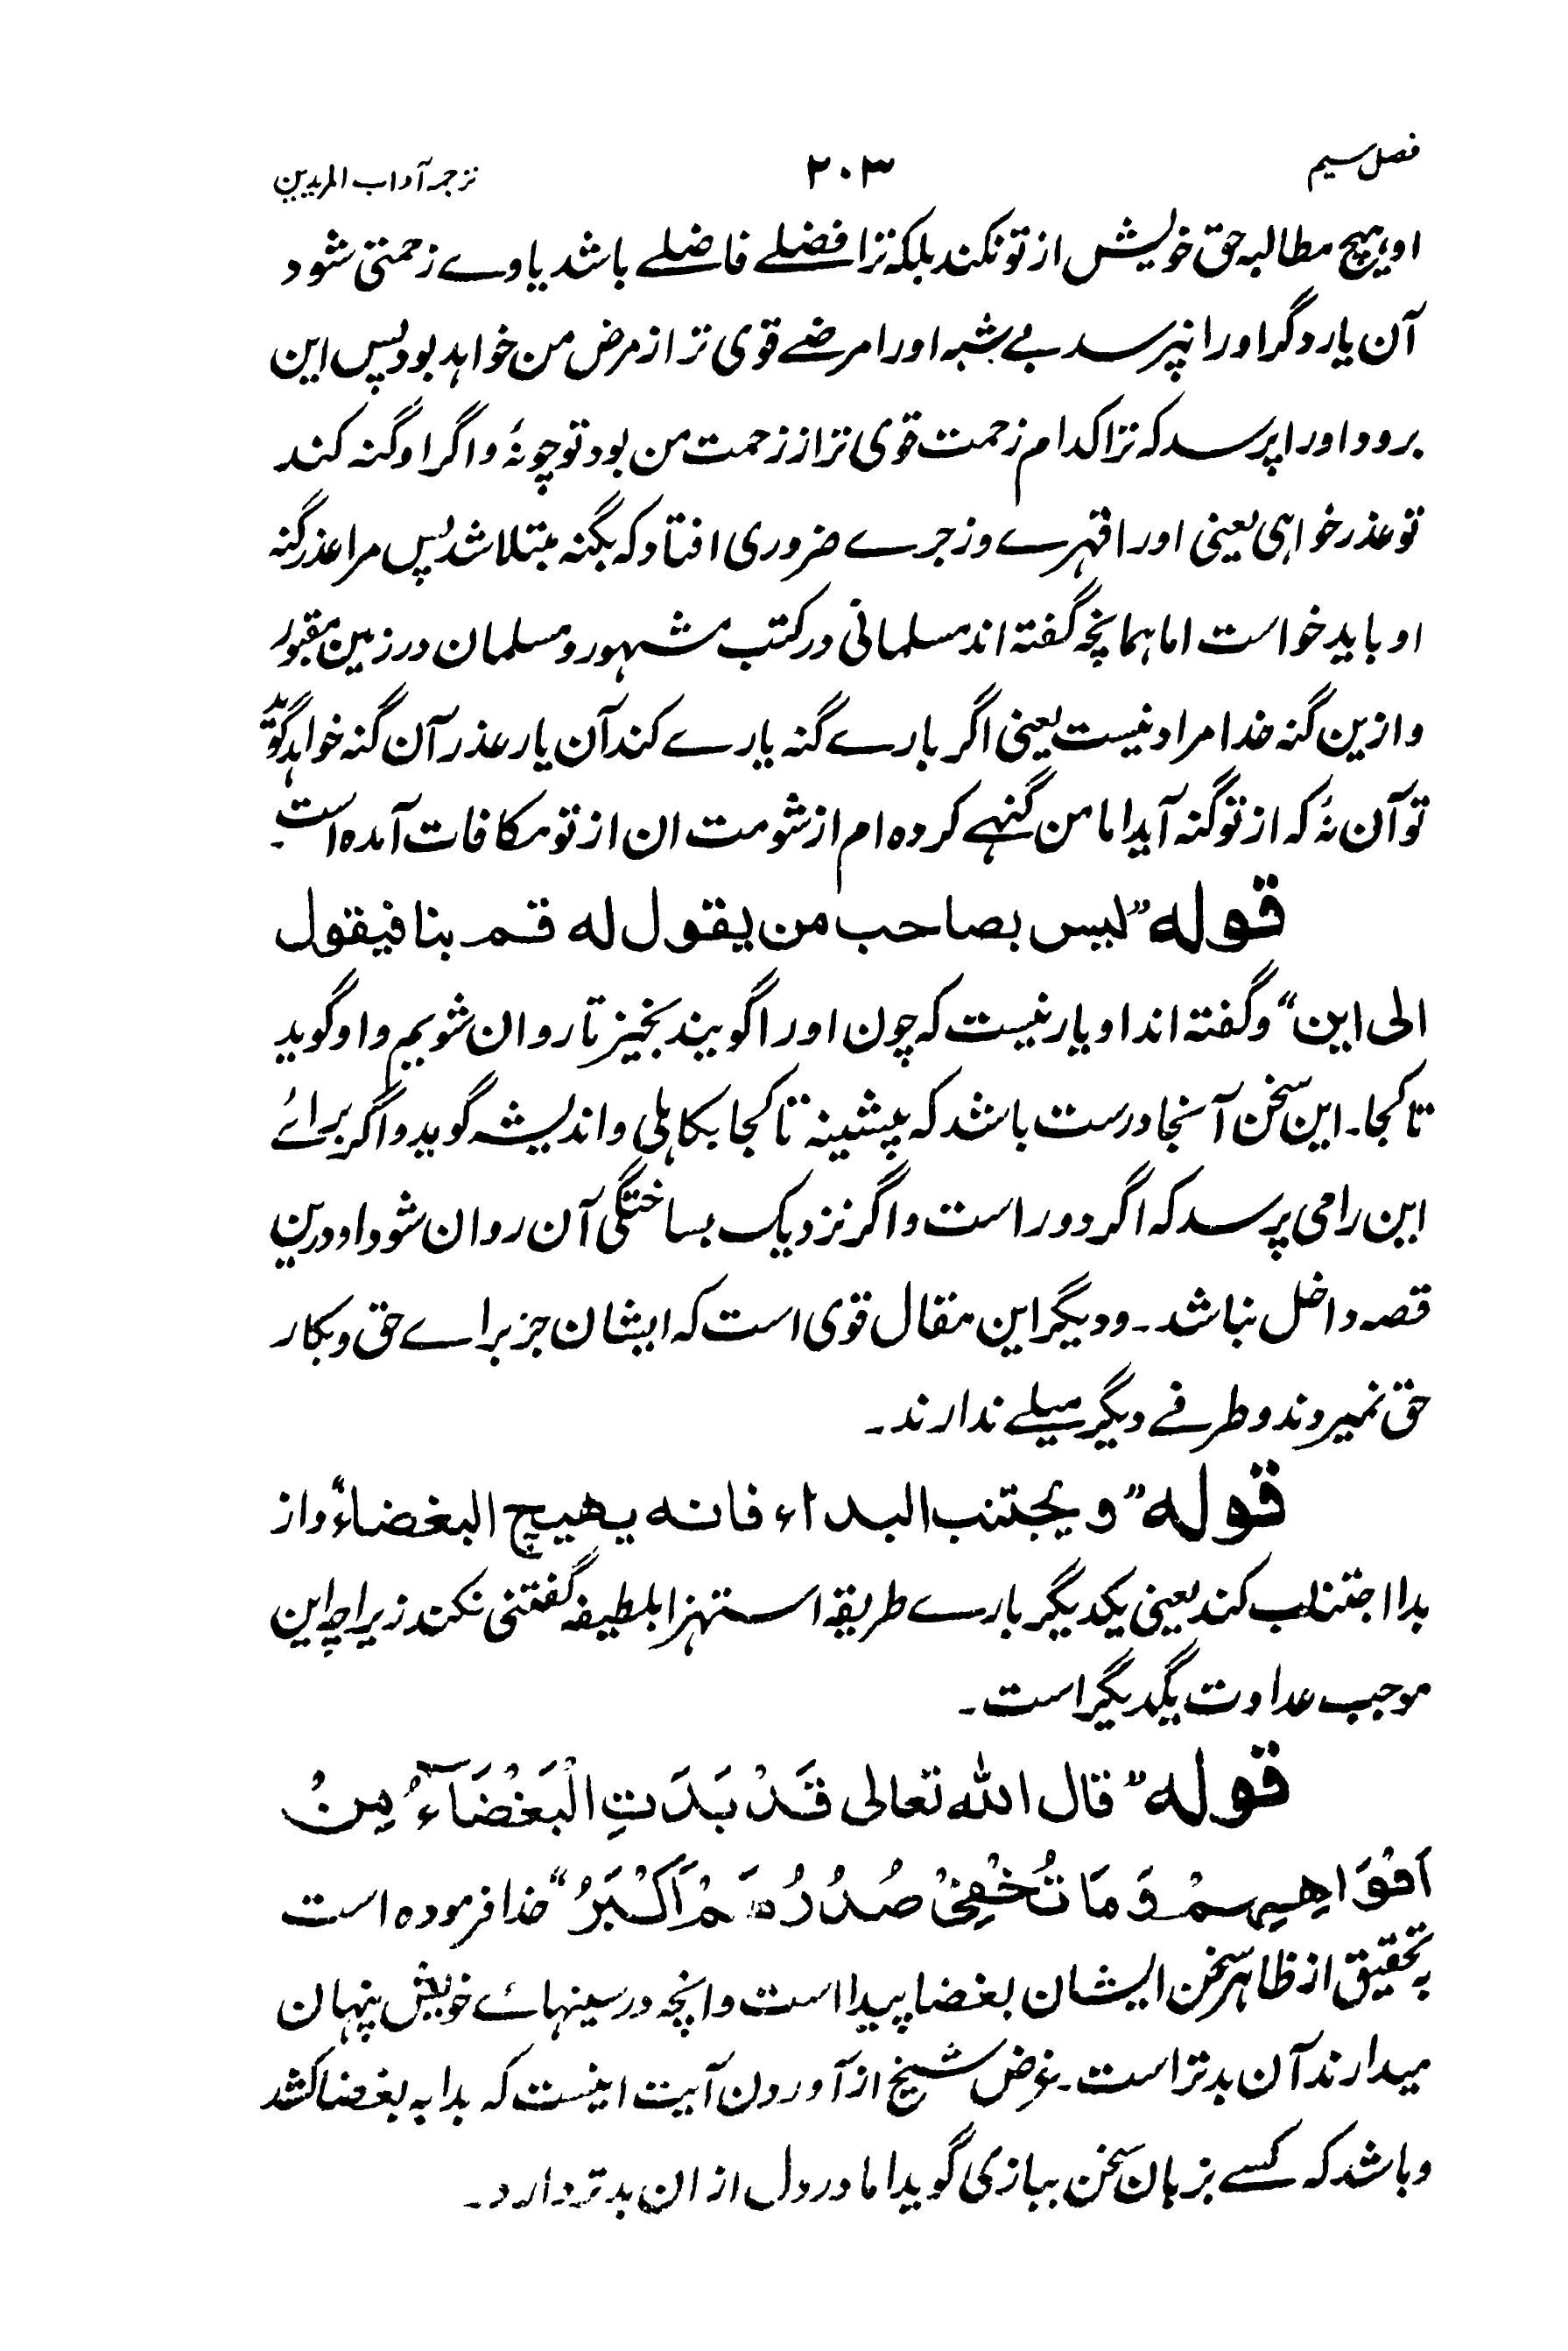 فصل سیم ۲۰۳ ترجمہ آداب المریدین
او ہیچ مطالبہ حق خویش از تو نکند بلکہ ترا فضلے فاضلے باشد یا وے زحمتی شود
آن یار دگر اورا نپرسد بے شبہ اورا مرضے قوی تر از مرض من خواہد بود پس این
برود اورا پرسد کہ ترا کدام زحمت قوی تر از زحمت من بود تو چونۂ و اگر او گنہ کند
تو عذر خواہی یعنی اورا قہرے و زجرے ضروری افتاد کہ بگنہ مبتلا شد پس مرا عذر گنہ
او باید خواست اما ہمانچہ گفتہ اند مسلمانی در کتب مشہور و مسلمان در زمین مقبور
و ازین گنہ خدا مراد نیست یعنی اگر بارے گنہ یارے کند آن یار عذر آن گنہ خواہد گوید
تو آن نۂ کہ از تو گنہ آید اما من گنہے کردہ ام از شومت ان از تو مکافات آمدہ است۔
قوله ”لیس بصاحب من یقول له قم بنا فیقول
الی این“ و گفتہ اند او یار نیست کہ چون اورا گویند بخیز تا روان شویم و او گوید
تا کجا۔ این سخن آنجا درست باشد کہ پیشینہ تا کجا بکاہلی و اندیشہ گوید و اگر براۓ
این را می پرسد کہ اگر دور است و اگر نزدیک بساختگی آن روان شود او درین
قصہ داخل نباشد۔ و دیگر این مقال قوی است کہ ایشان جز براے حق و بکار
حق نمیروند و طرفے دیگر میلے ندارند۔
قوله ”و یجتنب البداء فانه یهیج البغضاء“ و از
بدا اجتناب کند یعنی یکدیگر بارے طریقہ استہزا بلطیفہ گفتنی نکند زیراچہ این
موجب عداوت یگدیگر است۔
قوله ”قال الله تعالی قَدْ بَدَتِ الْبَغْضَآءُ مِنْ
اَفْوَاهِهِمْ وَمَا تُخْفِیْ صُدُرُهَمْ اَکْبَرُ“ خدا فرمودہ است
بہ تحقیق از ظاہر سخن ایشان بغضا پیدا است و انچہ در سینہاے خویش پنہان
میدارند آن بدتر است۔ غرض شیخ از آوردن آیت اینست کہ بدا بہ بغضا کشد
و باشد کہ کسے بزبان سخن ببازی گوید اما در دل از ان بدتر دارد۔